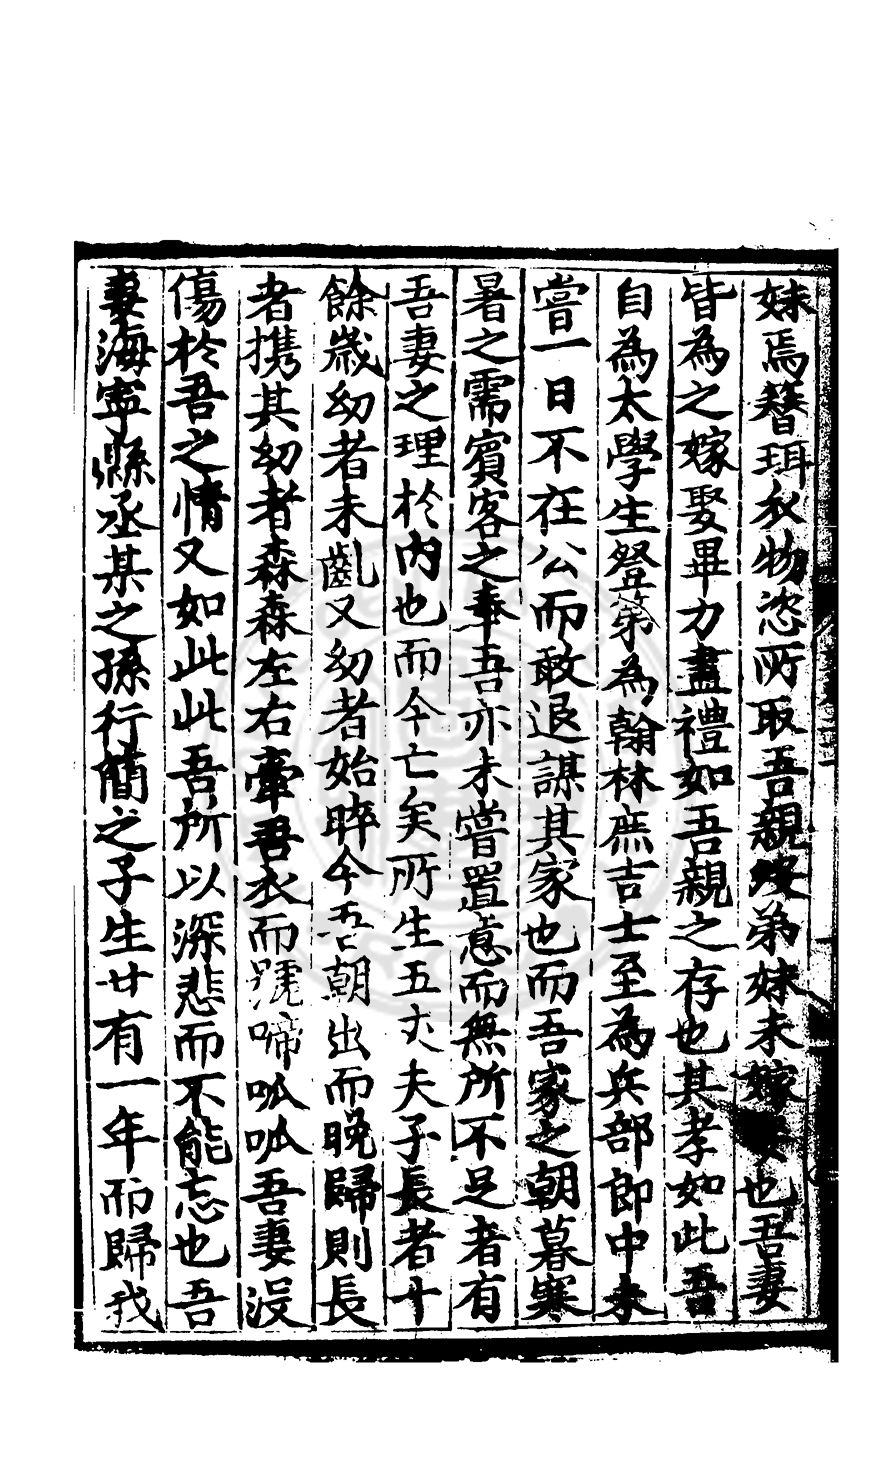 妹焉簪珥衣物恣所取吾親歿弟妹未嫁娶也吾妻
皆為之嫁娶畢力盡禮如吾親之存也其孝如此吾
自為太學生登第為翰林庶吉士至為兵部郎中未
嘗一日不在公而敢退謀其家也而吾家之朝暮寒
暑之需賓客之奉吾亦未嘗置意而無所不足者有
吾妻之理於内也而今亡矣所生五丈夫子長者十
餘歲幼者未齔又幼者始晬今吾朝出而晚歸則長
者携其幼者森森左右牽吾衣而號啼呱呱吾妻没
傷於吾之情又如此此吾所以深悲而不能忘也吾
妻海寧縣丞某之孫行簡之子生廿有一年而歸我